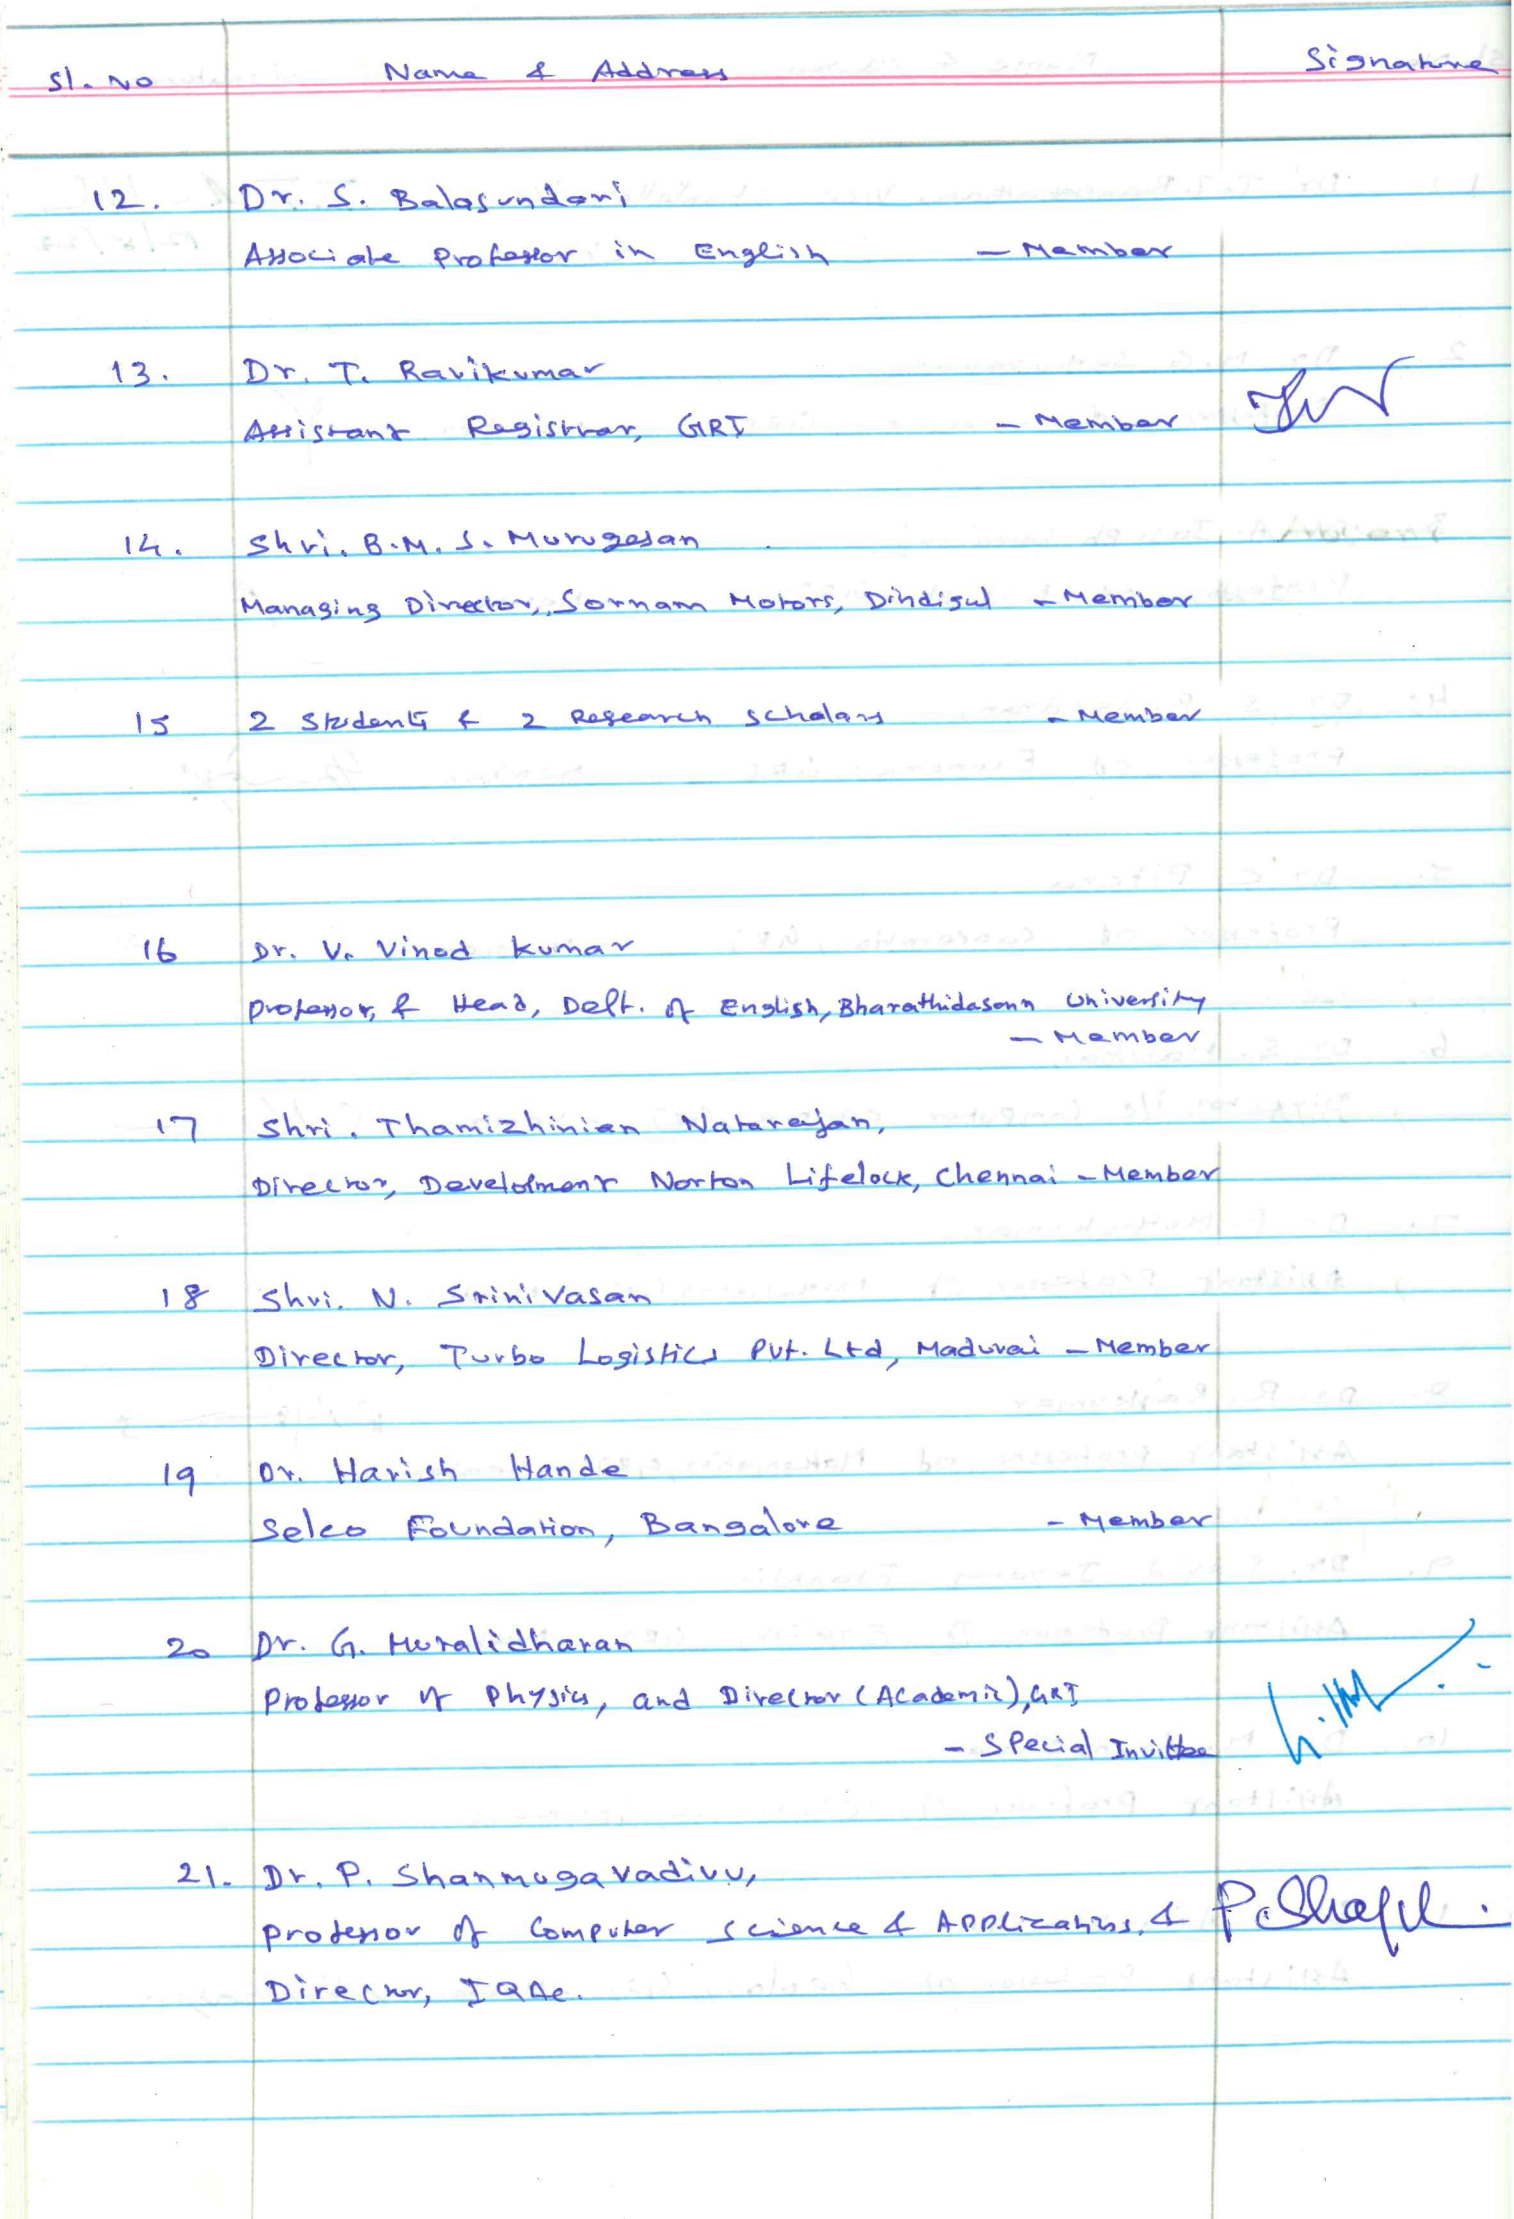 Sl. No Name & Address Signature
12. Dr. S. Balasundari
Associate Professor in English - Member
13. Dr. T. Ravikumar
Assistant Registrar, GRI - Member
14. Shri. B.M.S. Murugesan
Managing Director, Sornam Motors, Dindigul - Member
15 2 Students & 2 Research Scholars - Member
16 Dr. V. Vinod Kumar
Professor, & Head, Dept. of English, Bharathidasann University
- Member
17 Shri. Thamizhinian Natarajan,
Director, Development Norton Lifelock, Chennai - Member
18 Shri. N. Srinivasan
Director, Turbo Logistics Pvt. Ltd, Madurai - Member
19 Dr. Harish Hande
Selco Foundation, Bangalore - Member
20 Dr. G. Muralidharan
Professor of Physics, and Director (Academic), GRI
- Special Invittee
21. Dr. P. Shanmugavadivu,
Professor of Computer Science & Applications, &
Director, IQAC.